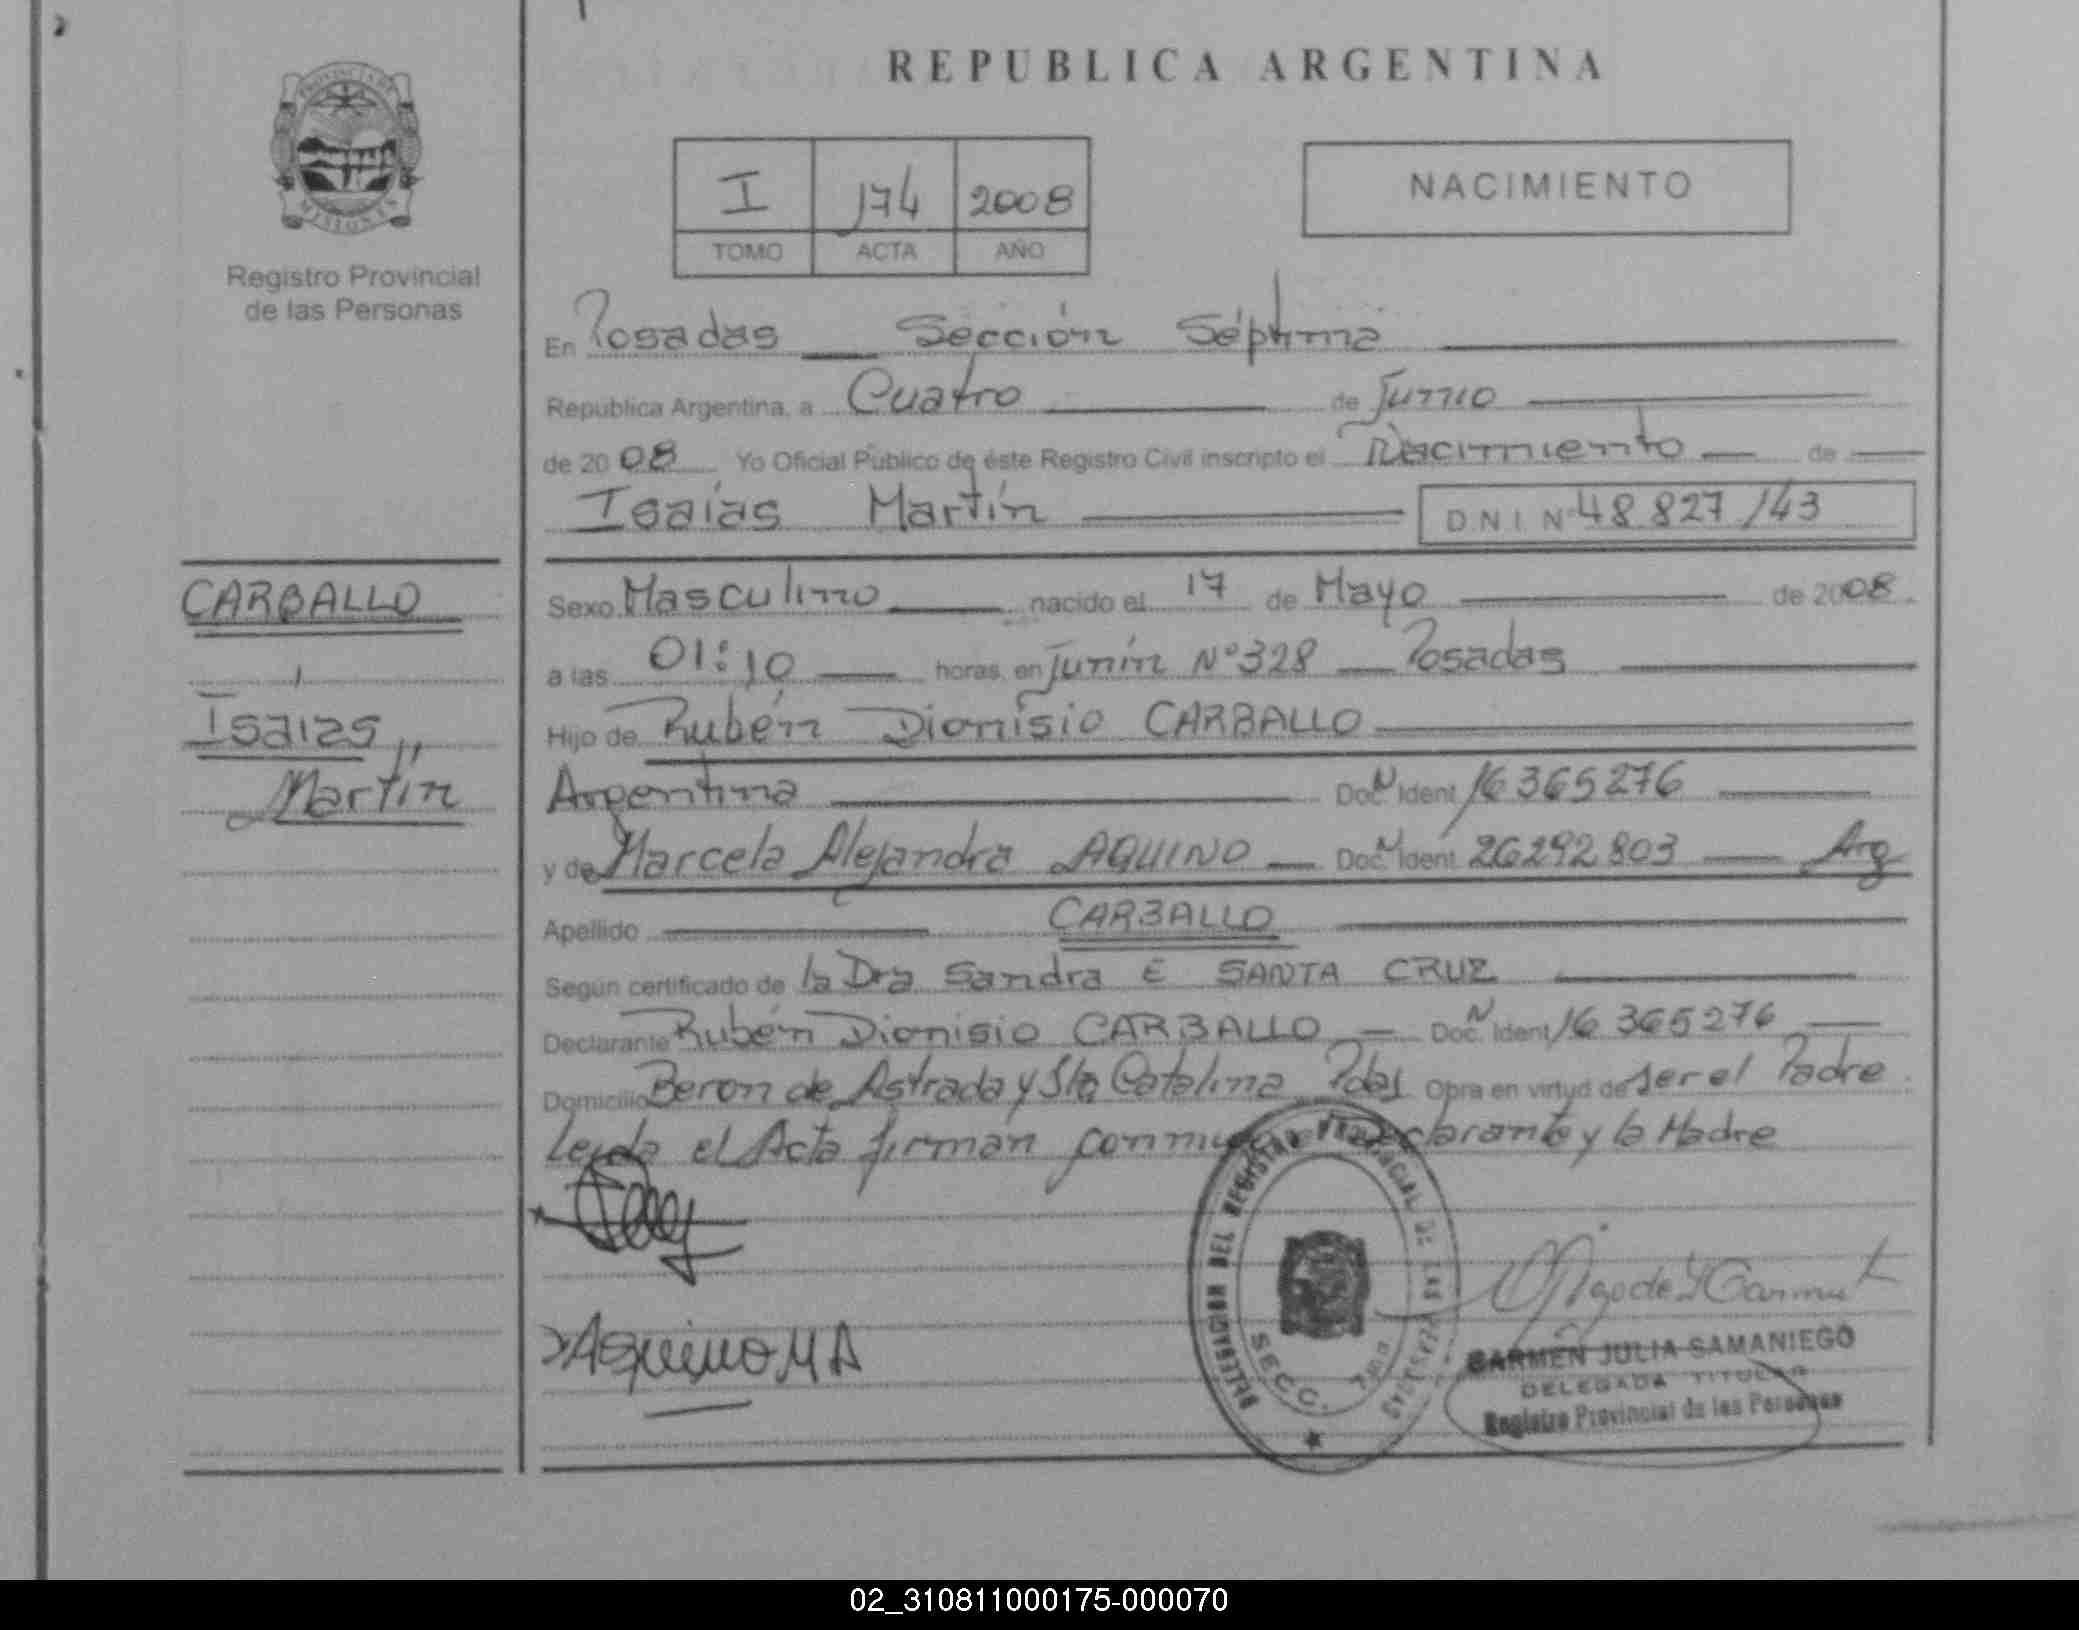 REPUBLICA ARGENTINA
PROVINCIA DE MISIONES
Registro Provincial
de las Personas
I 174 2008
TOMO ACTA AÑO
NACIMIENTO
En Posadas Sección Séptima
República Argentina, a Cuatro de Junio
de 2008 Yo Oficial Público de éste Registro Civil inscripto el Nacimiento de
Isaías Martín D N I Nº 48 827 143
CARBALLO
Isaías
Martín
Sexo Masculino nacido el 17 de Mayo de 2008
a las 01:10 horas, en Junín Nº 328 Posadas
Hijo de Rubén Dionisio CARBALLO
Argentina Doc. N Ident 16 365276
y de Marcela Alejandra AQUINO Doc. N Ident 26292 803 Arg
Apellido CARBALLO
Según certificado de la Dra Sandra E SANTA CRUZ
Declarante Rubén Dionisio CARBALLO Doc. N Ident 16 365276
Domicilio Beron de Astrada y Sta Catalina Pdas Obra en virtud de ser el Padre
Leida el Acta firman conmigo el Declarante y la Madre
Aquino M A
DELEGACION DEL REGISTRO PROVINCIAL DE LAS PERSONAS
SECC. 7
CARMEN JULIA SAMANIEGO
DELEGADA TITULAR
Registro Provincial de las Personas
02_310811000175-000070